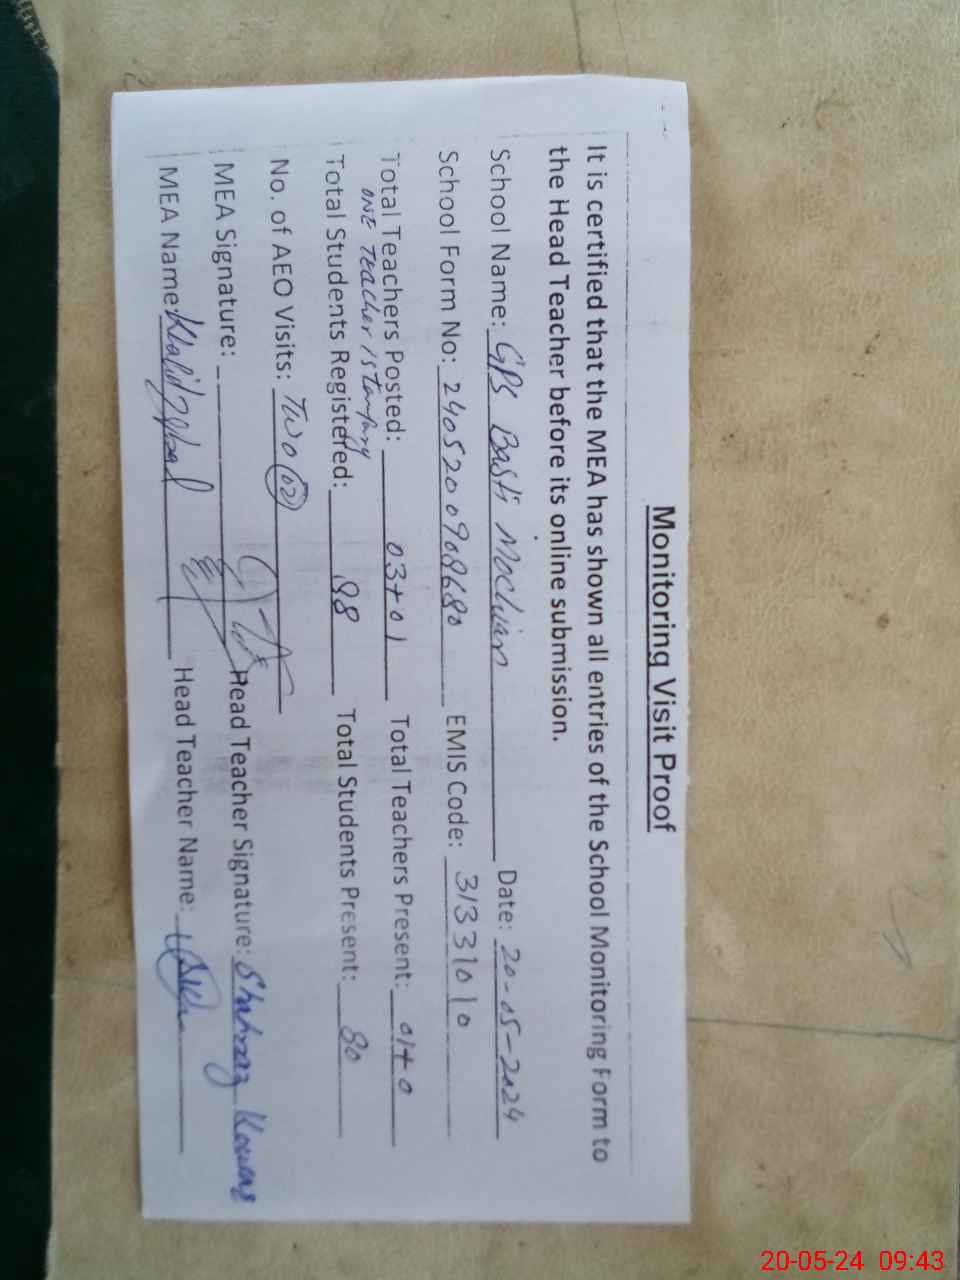 Monitoring Visit Proof
It is certified that the MEA has shown all entries of the School Monitoring Form to
the Head Teacher before its online submission.
School Name: GPS Basti Mochian Date: 20-05-2024
School Form No: 240520090868 80 EMIS Code: 31331010
Total Teachers Posted: 03+01 Total Teachers Present: 01+0
ONE Teacher is
Total Students Registered: 98 Total Students Present: 80
No. of AEO Visits: Two (02)
MEA Signature: Head Teacher Signature: Shahnaz
MEA Name: Khalid Iqbal Head Teacher Name:
20-05-24 09:43